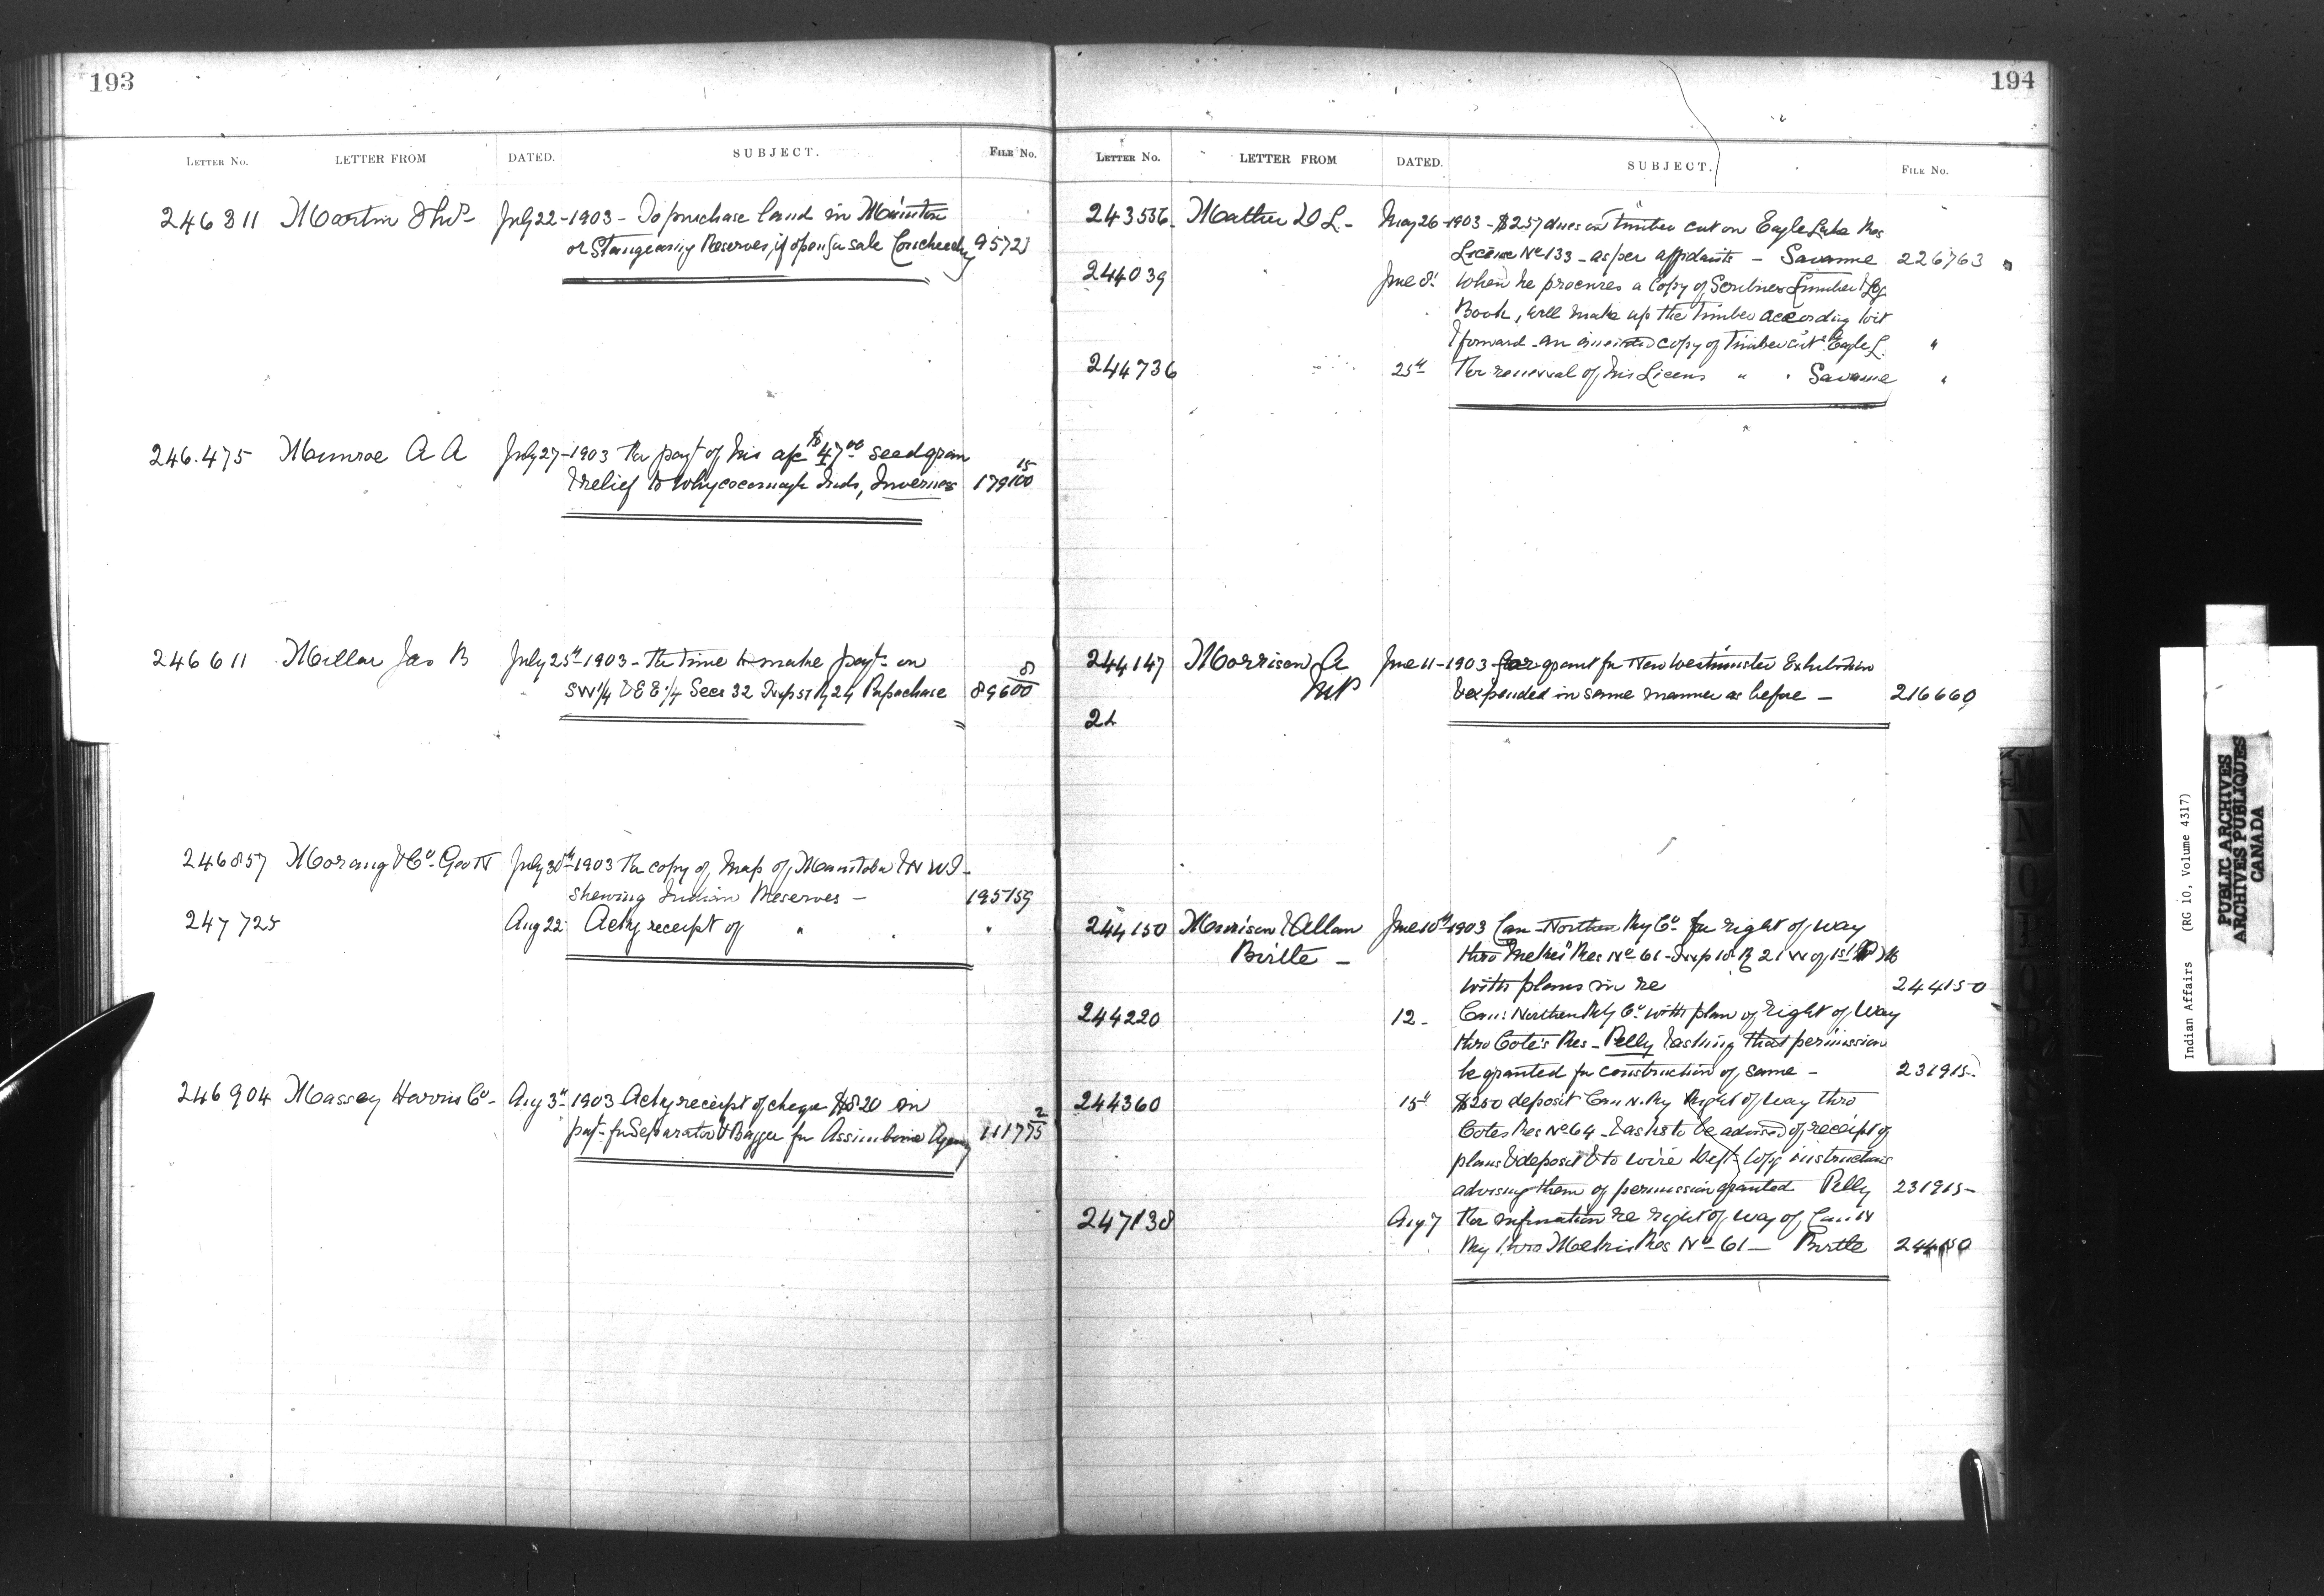 193
LETTER NO. LETTER FROM DATED. SUBJECT. FILE NO.
246311 Martin Thos July 22-1903- To purchase land in
or Stangecoming Reserves, if open for sale Couchiching 95721
246.475 Munroe A A July 27-1903 For payt of his a/c $47.00 seed grain
& relief to Whycocomagh Inds, Inverness 179100 15
246611 Millar Jas B July 25th-1903- For time to make payt- on
SW 1/4 & 1/4 Secs 32 R 24 89600 8
246857 Morang & Co. Geo N July 30th-1903 For copy of map of Manitoba & N W T-
Shewing Indian Reserves - 195159
247725 Aug 22 Ackg receipt of " . "
246904 Massey Harris Co- Aug 3rd-1903 Ackg receipt of cheque $820 in
payt- for Separator & Bagger for Assiniboine Agency 111775 2
194
LETTER NO. LETTER FROM DATED. SUBJECT. FILE NO.
243536. Mather D L- May 26-1903-$257 dues on Timber cut on Eagle Lake Res
License No 133- as per affidavits - Savanne 226763
244039 June 8. When he procures a copy of Scribners Lumber & Log
Book, will make up the timber according to it
& forward an copy of Timber cut Eagle L. "
244736 25th For renewal of his Licens " " Savanne "
244147 Morrison A June 11-1903 For grant for New Westminster Exhibition
MP & expended in same manner as before - 216660
24
244150 Morrison & Allan June 10th 1903 Can-Northern Ry Co. for right of way
Birtle - thro Res No 61- Twp 18 R 21 W of 1st
with plans in re 244150
244220 12- Can: Northern Rly Co with plan of right of Way
thro Cote's Res- Pelly & asking that permission
be granted for construction of same- 231915-
244360 15th $250 deposit Can N. Ry Right of Way thro
Cotes Res No 64- & asks to be advised of receipt of
plans & deposit & to wire Dept- instructions
advising them of permission granted Pelly 231915-
247138 Aug 7 For information re right of way of Can N
Ry thro Res No- 61- Birtle 244150
Indian Affairs (RG 10, Volume 4317)
PUBLIC ARCHIVES
ARCHIVES PUBLIQUES
CANADA
M
N
O
P